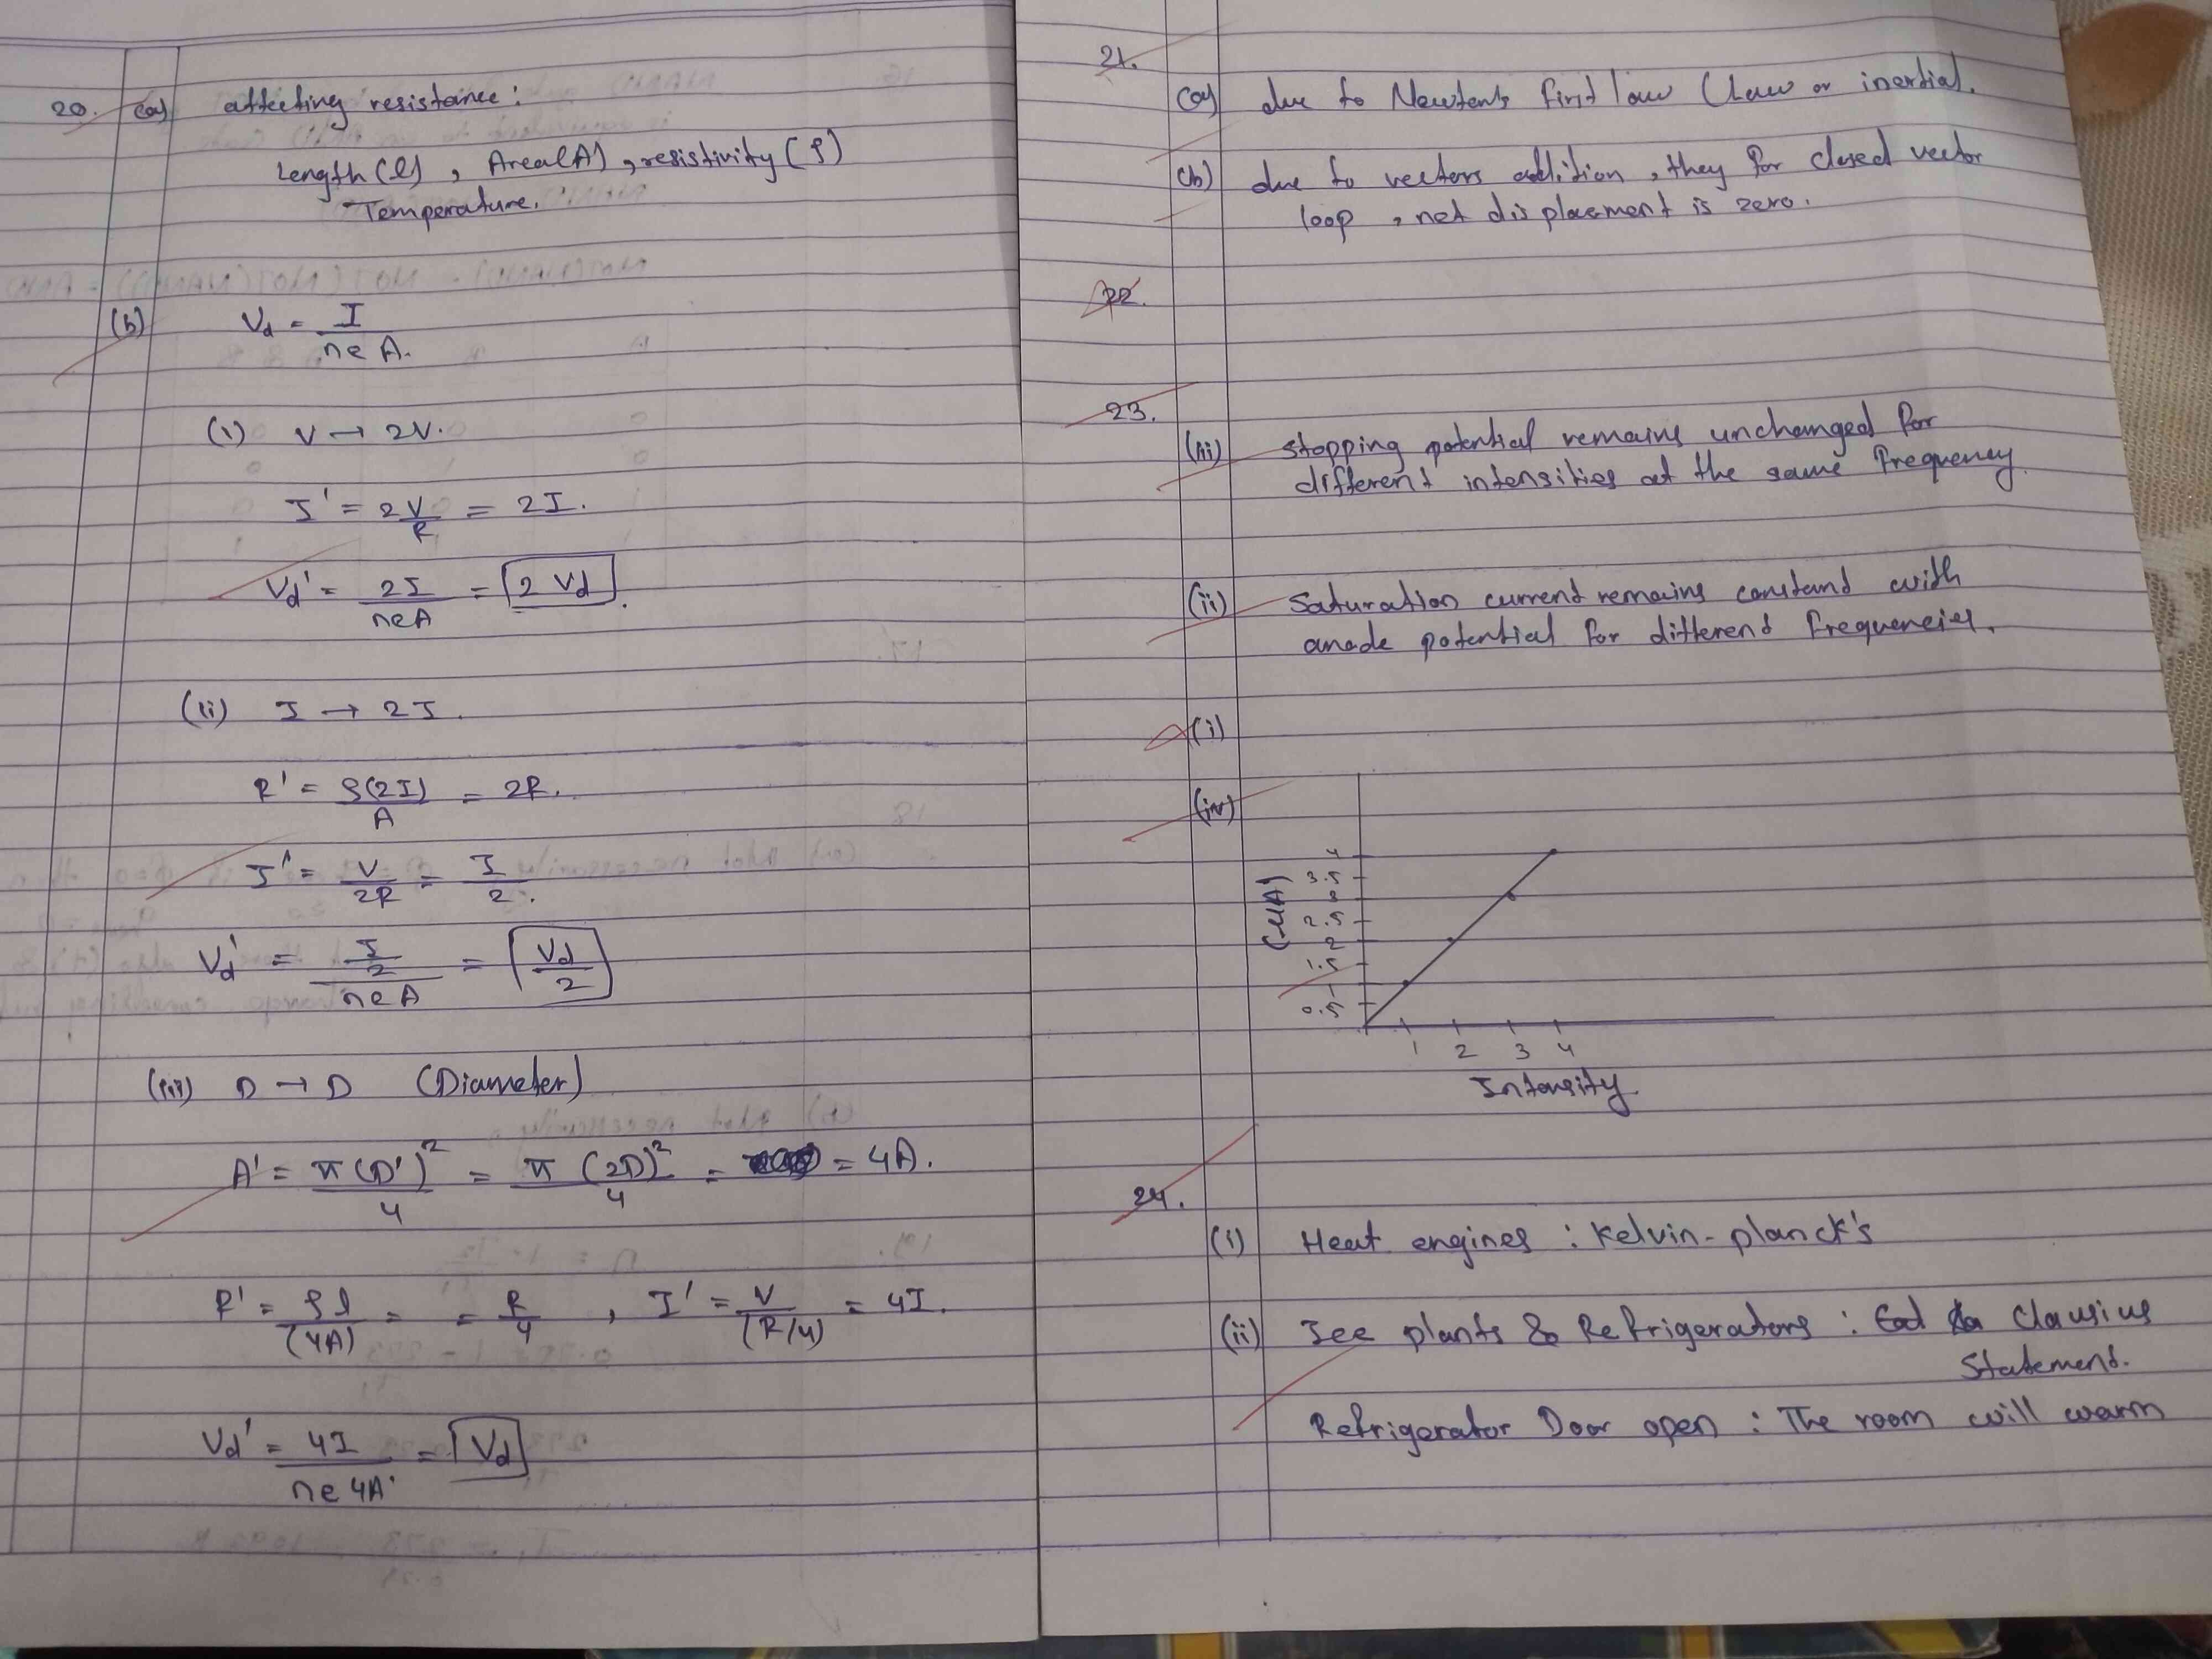 20. (a) affecting resistance:
Length (l), Area (A), resistivity (ρ)
Temperature.
(b) Vd = I / neA.
(i) V → 2V.
I' = 2V/R = 2I.
Vd' = 2I / neA = 2 Vd.
(ii) I → 2I.
R' = ρ(2I) / A = 2R.
I' = V/2R = I/2.
Vd' = I/2 / neA = Vd/2
(iii) D → D (Diameter)
A' = π(D')² / 4 = π(2D)² / 4 = = 4A.
R' = ρl / (4A) = = R/4, I' = V / (R/4) = 4I.
Vd' = 4I / ne4A = Vd
21.
(a) due to Newton's first law (Law or inertial.
(b) due to vectors addition, they for closed vector
loop, net displacement is zero.
22.
23.
(iii) Stopping potential remains unchanged for
different intensities at the same frequency.
(ii) Saturation current remains constand with
anode potential for differend frequencies.
(i)
(iv)
(μA)
4
3.5
3
2.5
2
1.5
1
0.5
1 2 3 4
Intensity
24.
(i) Heat engines : Kelvin-planck's
(ii) Ice plants & Refrigerators : Clausius
Statement.
Refrigerator Door open : The room will warm